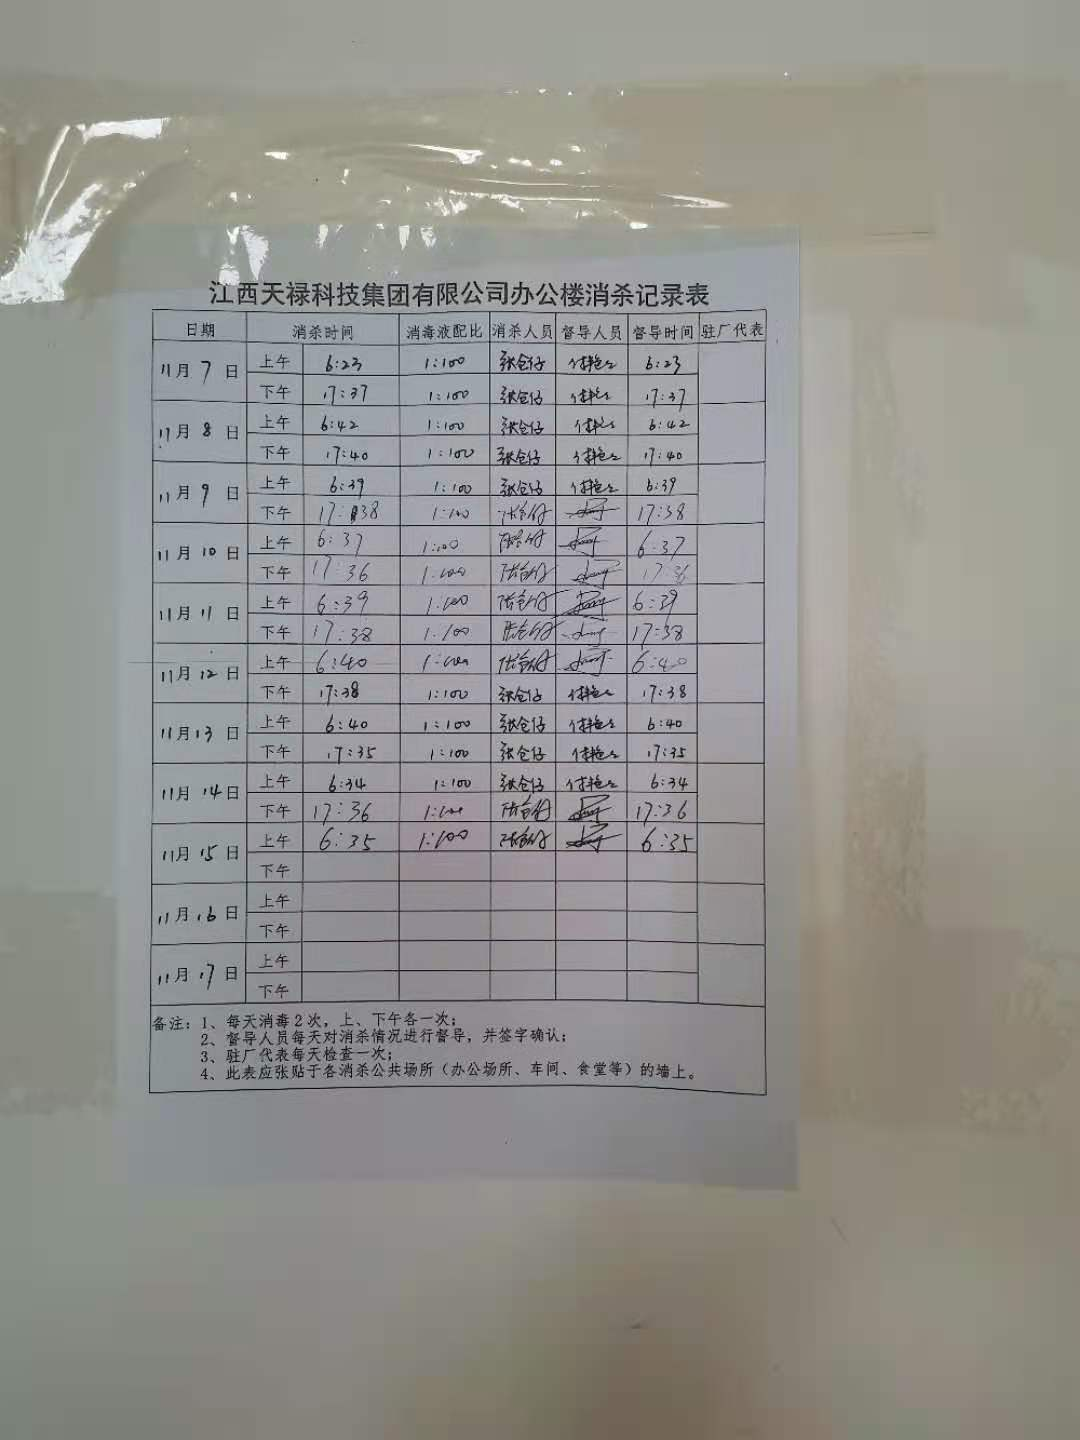 江西天禄科技集团有限公司办公楼消杀记录表
日期 消杀时间 消毒液配比 消杀人员 督导人员 督导时间 驻厂代表
11月7日 上午 6:23 1:100 张仓仔 6:23
下午 17:37 1:100 张仓仔 17:37
11月8日 上午 6:42 1:100 张仓仔 6:42
下午 17:40 1:100 张仓仔 17:40
11月9日 上午 6:39 1:100 张仓仔 6:39
下午 17:38 1:100 17:38
11月10日 上午 6:37 1:100 6:37
下午 17:36 1:100 17:36
11月11日 上午 6:39 1:100 6:39
下午 17:38 1:100 17:38
11月12日 上午 6:40 1:100 6:40
下午 17:38 1:100 张仓仔 17:38
11月13日 上午 6:40 1:100 张仓仔 6:40
下午 17:35 1:100 张仓仔 17:35
11月14日 上午 6:34 1:100 张仓仔 6:34
下午 17:36 1:100 17:36
11月15日 上午 6:35 1:100 6:35
下午
11月16日 上午
下午
11月17日 上午
下午
备注：1、每天消毒2次，上、下午各一次；
2、督导人员每天对消杀情况进行督导，并签字确认；
3、驻厂代表每天检查一次；
4、此表应张贴于各消杀公共场所（办公场所、车间、食堂等）的墙上。